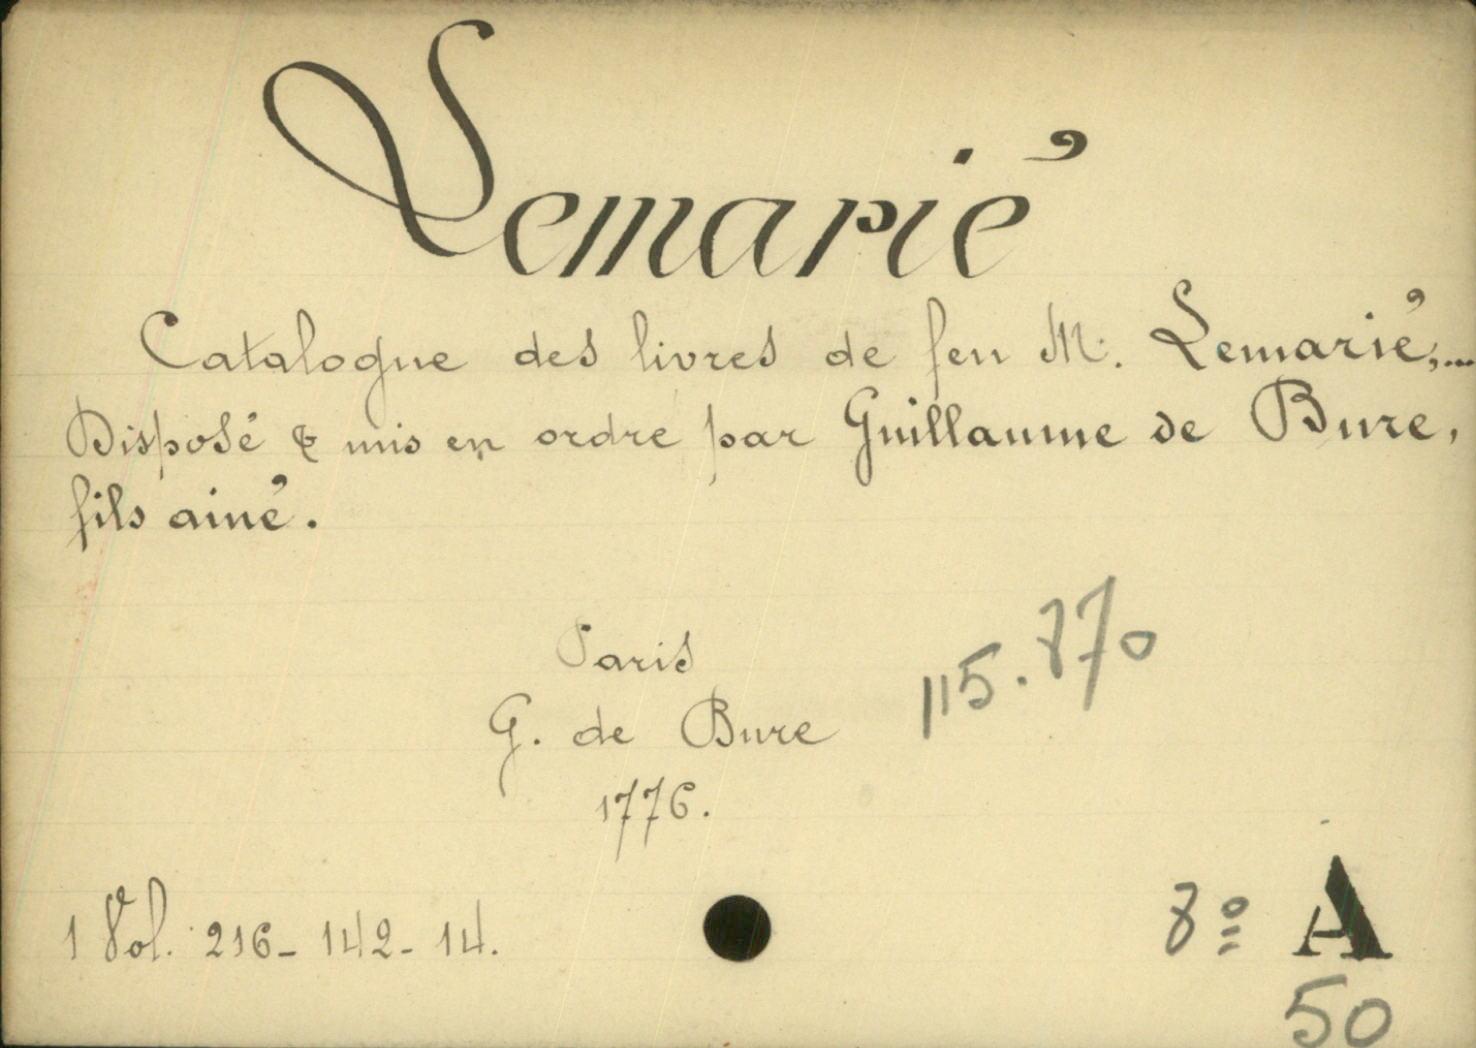 Lemarié
Catalogue des livres de feu M. Lemarié,...
Disposé & mis en ordre par Guillaume de Bure,
fils ainé.
Paris
115.870
G. de Bure
1776.
1 Vol. 216- 142- 14.
8º A
50